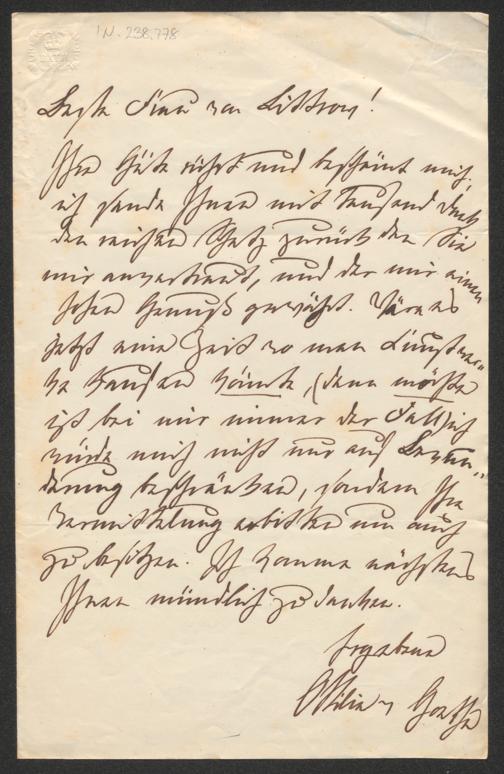 I.N. 238.778
Beste Frau von Littrow!
Ihre Güte rührt und beschämt mich,
ich sende Ihnen mit tausend Dank
den reichen Schatz zurück den Sie
mir anvertraut, und der mir einen
hohen Genuß gewährt. Wäre es
jetzt eine Zeit wo man Kunstwer„
ke kaufen könnte, (denn möchte
ist bei mir immer der Fall) ich
würde mich nicht nur auf Bewun„
derung beschränken, sondern Ihre
Vermittelung erbitten um auch
zu besitzen. Ich komme nächstens
Ihnen mündlich zu danken.
Ergebene
Ottilie v Goethe